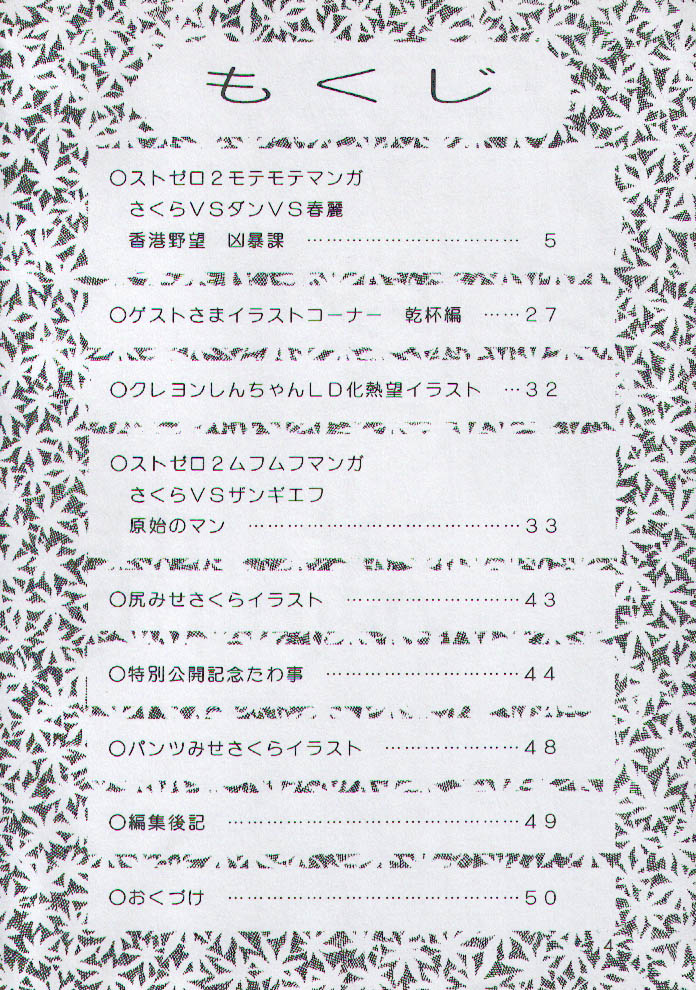 もくじ
○ストゼロ２モテモテマンガ
さくらＶＳダンＶＳ春麗
香港野望　凶暴課　………………………………　５
○ゲストさまイラストコーナー　乾杯編　……２７
○クレヨンしんちゃんＬＤ化熱望イラスト　…３２
○ストゼロ２ムフムフマンガ
さくらＶＳザンギエフ
原始のマン　………………………………………３３
○尻みせさくらイラスト　…………………………４３
○特別公開記念たわ事　……………………………４４
○パンツみせさくらイラスト　……………………４８
○編集後記　…………………………………………４９
○おくづけ　…………………………………………５０
4